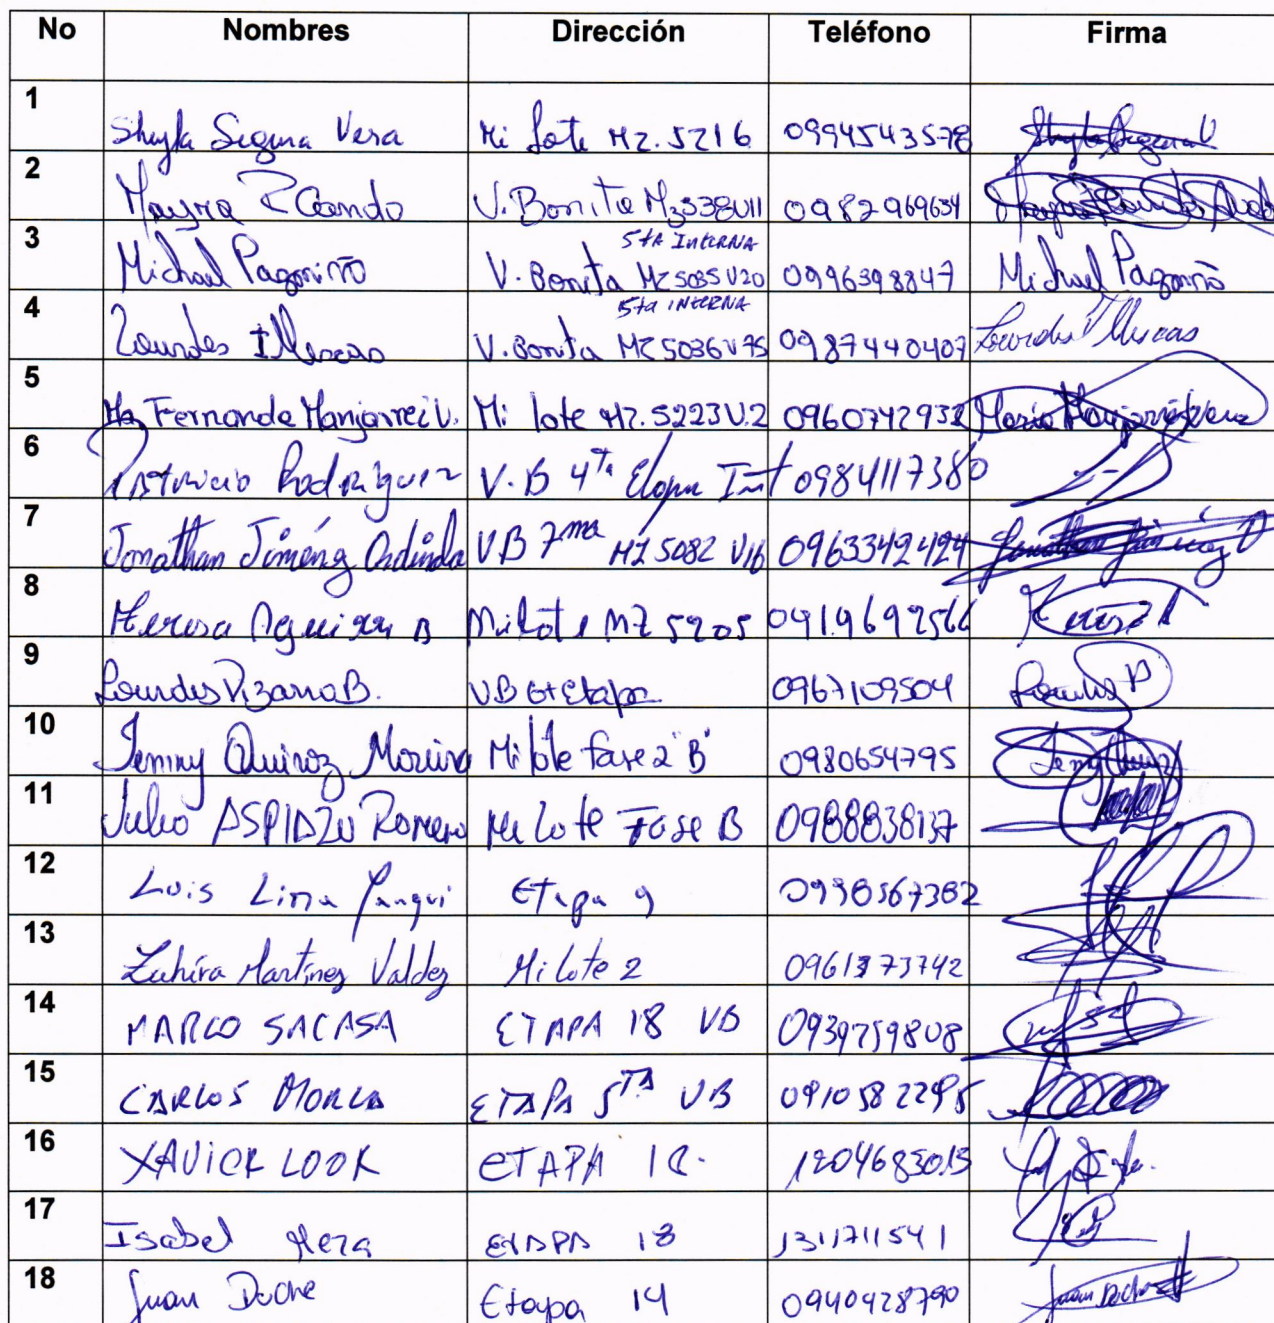 No Nombres Dirección Teléfono Firma
1 Shyla Segura Vera Mi Lote Mz. 5216 0994543578
2 Mayra V. Bonita Mz 538 V11 0982969634
5ta INTERNA
3 Michael Pazmiño V. Bonita Mz 5035 V20 0996398847 Michael Pazmiño
5ta INTERNA
4 Lourdes Illescas V. Bonita Mz 5036 V75 0987440407 Lourdes Illescas
5 Ma Fernanda Manjarrez V. Mi lote Mz. 5223 V.2 0960742932
6 Patricio Rodriguez V.B 4ta Etapa Int 0984117380
7 Jonathan Jiménez VB 7ma MZ 5082 V16 0963342424
8 Aguirre B Mi Lote MZ 5205
9 Lourdes Pizarro B. VB 6ta Etapa 0967109504 Lourdes P
10 Jenny Quiroz Moreira Mi lote fase 2 "B" 0980654795
11 Julio ASPIAZU Romero Mi Lote Fase B 0988838137
12 Luis Lima Yanqui Etapa 9 0998567382
13 Zahira Martínez Valdez Mi Lote 2
14 MARCO SACASA ETAPA 18 VB 0939759808
15 CARLOS MORLA ETAPA 5TA VB 0910582295
16 XAVIER LOOK ETAPA
17 Isabel Mera ETAPA 18 1311711541
18 Juan Doche Etapa 14 0940428790